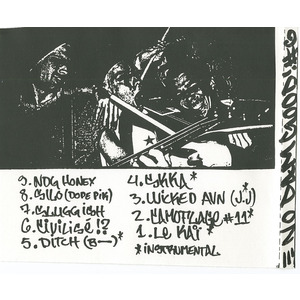 9. NDG HONEX
8. SILO (DOPE PIK)
7. SLUGGISH
6. CIVILISÉ!?
5. DITCH (B—)*
4. SKKA*
3. WICKED AVN (J.J)
2. CAMOFLAGE #11*
1. LE KAÏ*
*INSTRUMENTAL